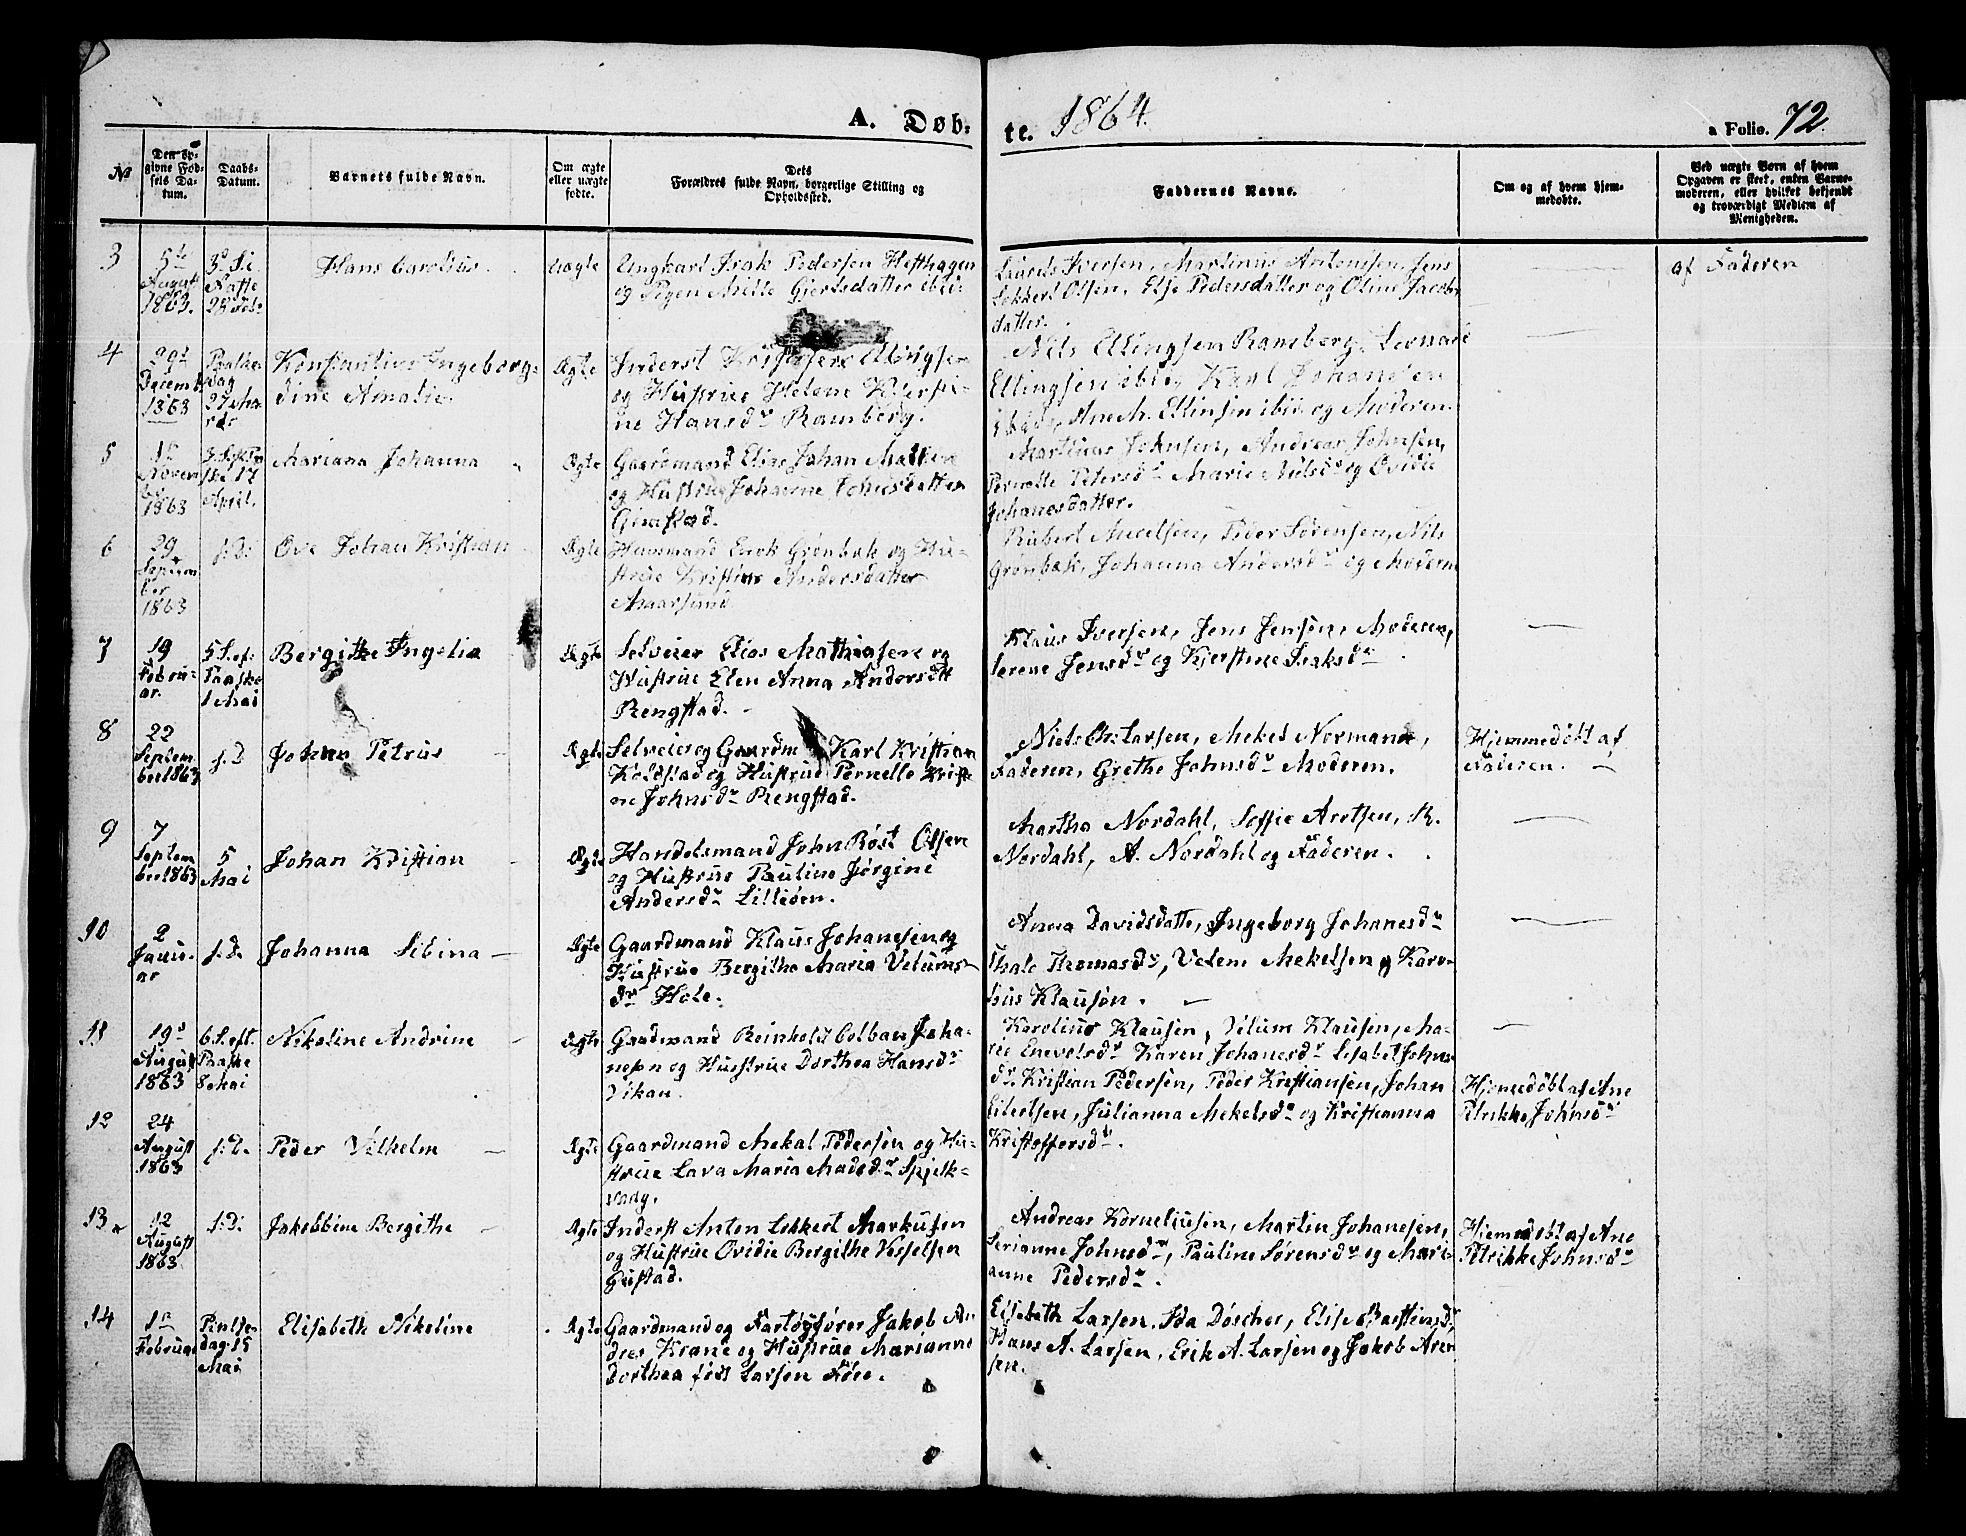 A. Døb-
te. 1864.
a Folio. 72.
No
Den opgivne Fødsels Datum.
Daabs-Datum.
Barnets fulde Navn.
Om ægte eller uægte fødte.
Dets Forældres fulde Navn, borgerlige Stilling og Opholdssted.
Faddernes Navne.
Om og af hvem hjemmedøbte.
Ved uægte Børn af hvem Opgaven er skeet, enten Barnemoderen, eller hvilket bekjendt og troværdigt Medlem af Menigheden.
3
5te
August
1863.
Faste
Hans Carolius
Uægte
Ungkarl Isak Pedersen Hefthagen
og Pigen Mette Gjertsdatter ibi:
Laurits Iversen, Martinus Antonsen, Jens
Lekkert Olsen, Else Pedersdatter og Oline Jacobs
datter.
af Faderen
4
29d
Decemb
1863
Paaske
dag
27 Ma
rts
Konstantine Ingeborg-
dine Amalie
Ægte
Inderst Kristofer Ellingsen
og Hustrue Helene Kjersti-
ne Hansdr Ramberg.
Nils Ellingsen Ramberg, Leonard
Ellingsen ibid, Karl Johansen
ibid, Ane M. Ellinsen ibid og Moderen.
5
1ste
Novem
ber
1863
3 S. eft. Paa
ske 17
April.
Mariana Johanna
Ægte
Gaardmand Elias Johan
og Hustrue Johanne Johnsdatter
Gimstad.
Martinus Johnsen, Andreas Johnsen,
Pernelle Petersdr Marie Nilsdr og Ovidie
Johanesdatter.
6
29
Septem
ber
1863
s: D:
Ove Johan Kristian
Ægte
Huusmand Enok Grønbæk og Hu-
strue Kristine Andersdatter
Maarsund
Rubert Anselsen, Peder Sørensen, Nils
Grønbæk, Johanna Andersdr og Moderen
7
19
Febru-
ar.
5 S. ef:
Paaske
1 Mai
Bergitte Ingelia
Ægte
Selveier Elias Mathiasen og
Hustrue Elen Anna Andersdt
Rengstad.
Klaus Iversen, Jens Jensen, Moderen,
Lerene Jensdr og Kjerstine Isaksdr.
8
22
Septem
ber 1863
s. D
Johan Petrus
Ægte
Selveier og Gaardm Karl Kristian
Koldstad og Hustrue Pernelle Kristi
ne Johnsdr Rengstad.
Niels Chr Larsen, Mekel Normann,
Faderen, Grethe Johnsdr Moderen.
Hjemmedøbt af
Faderen.
9
7
Septem
ber 1863
5
Mai
Johan Kristian
Ægte
Handelsmand John Røst Olsen
og Hustrue Pauline Jørgine
Andersdr Lilleøen.
Martha Nordahl, Soffie Arntsen, R.
Nordahl, A. Nordahl og Faderen.
10
2
Janu-
ar
s. d.
Johanna Sibina
Ægte
Gaardmand Klaus Johanesen og
Hustrue Bergithe Maria Velums-
dr Hole.
Anna Davidsdatte, Ingeborg Johanesdr
Thale Thomasdr, Velem Mekelsen og Karo-
lius Klausen.
11
19d
August
1863
6. S. eft.
Paaske
8 Mai
Nikoline Andrine
Ægte
Gaardmand Reinholdt Colban Joha-
nesen og Hustrue Dorthea Hansdr
Vikan.
Karolius Klausen, Velum Klausen, Ma-
rie Enevolsdr Karen Johanesdr Lisabet Johns
dr.
12
24
August
1863
s. D.
Peder Vilhelm
Ægte
Gaardmand Mekal Pedersen og Hu-
strue Lava Maria Madsdr Spjelk-
vaag.
Kristian Pedersen, Peder Kristiansen, Johan
Eilertsen, Julianna Mekelsdr og Kristianna
Kristoffersdr.
Hjemmedøbt af Ane
Petrikke Johnsdr
13
12
August
1863
s: D:
Jakobbine Bergithe
Ægte
Inderst Anton Lekkert Markusen
og Hustrue Ovidie Bergithe Vesselsen
Gustad.
Andreas Korneliusen, Martin Johanesen,
Serianne Johnsdr, Pauline Sørensdr og Mari-
anne Pedersdr.
Hjemmedøbt af Ane
Petrikke Johnsdr
14
1ste
Februar
Pintse
dag 15
Mai
Elisabeth Nikoline
Ægte
Gaardmand og Fartøyfører Jakob An
dres Krane og Hustrue Marianne
Dorthea født Larsen Føre.
Elisebeth Larsen, Ida Døscher, Elise Bastiansdr
Hans A. Larsen, Erik A. Larsen og Jakob Aren
sen.